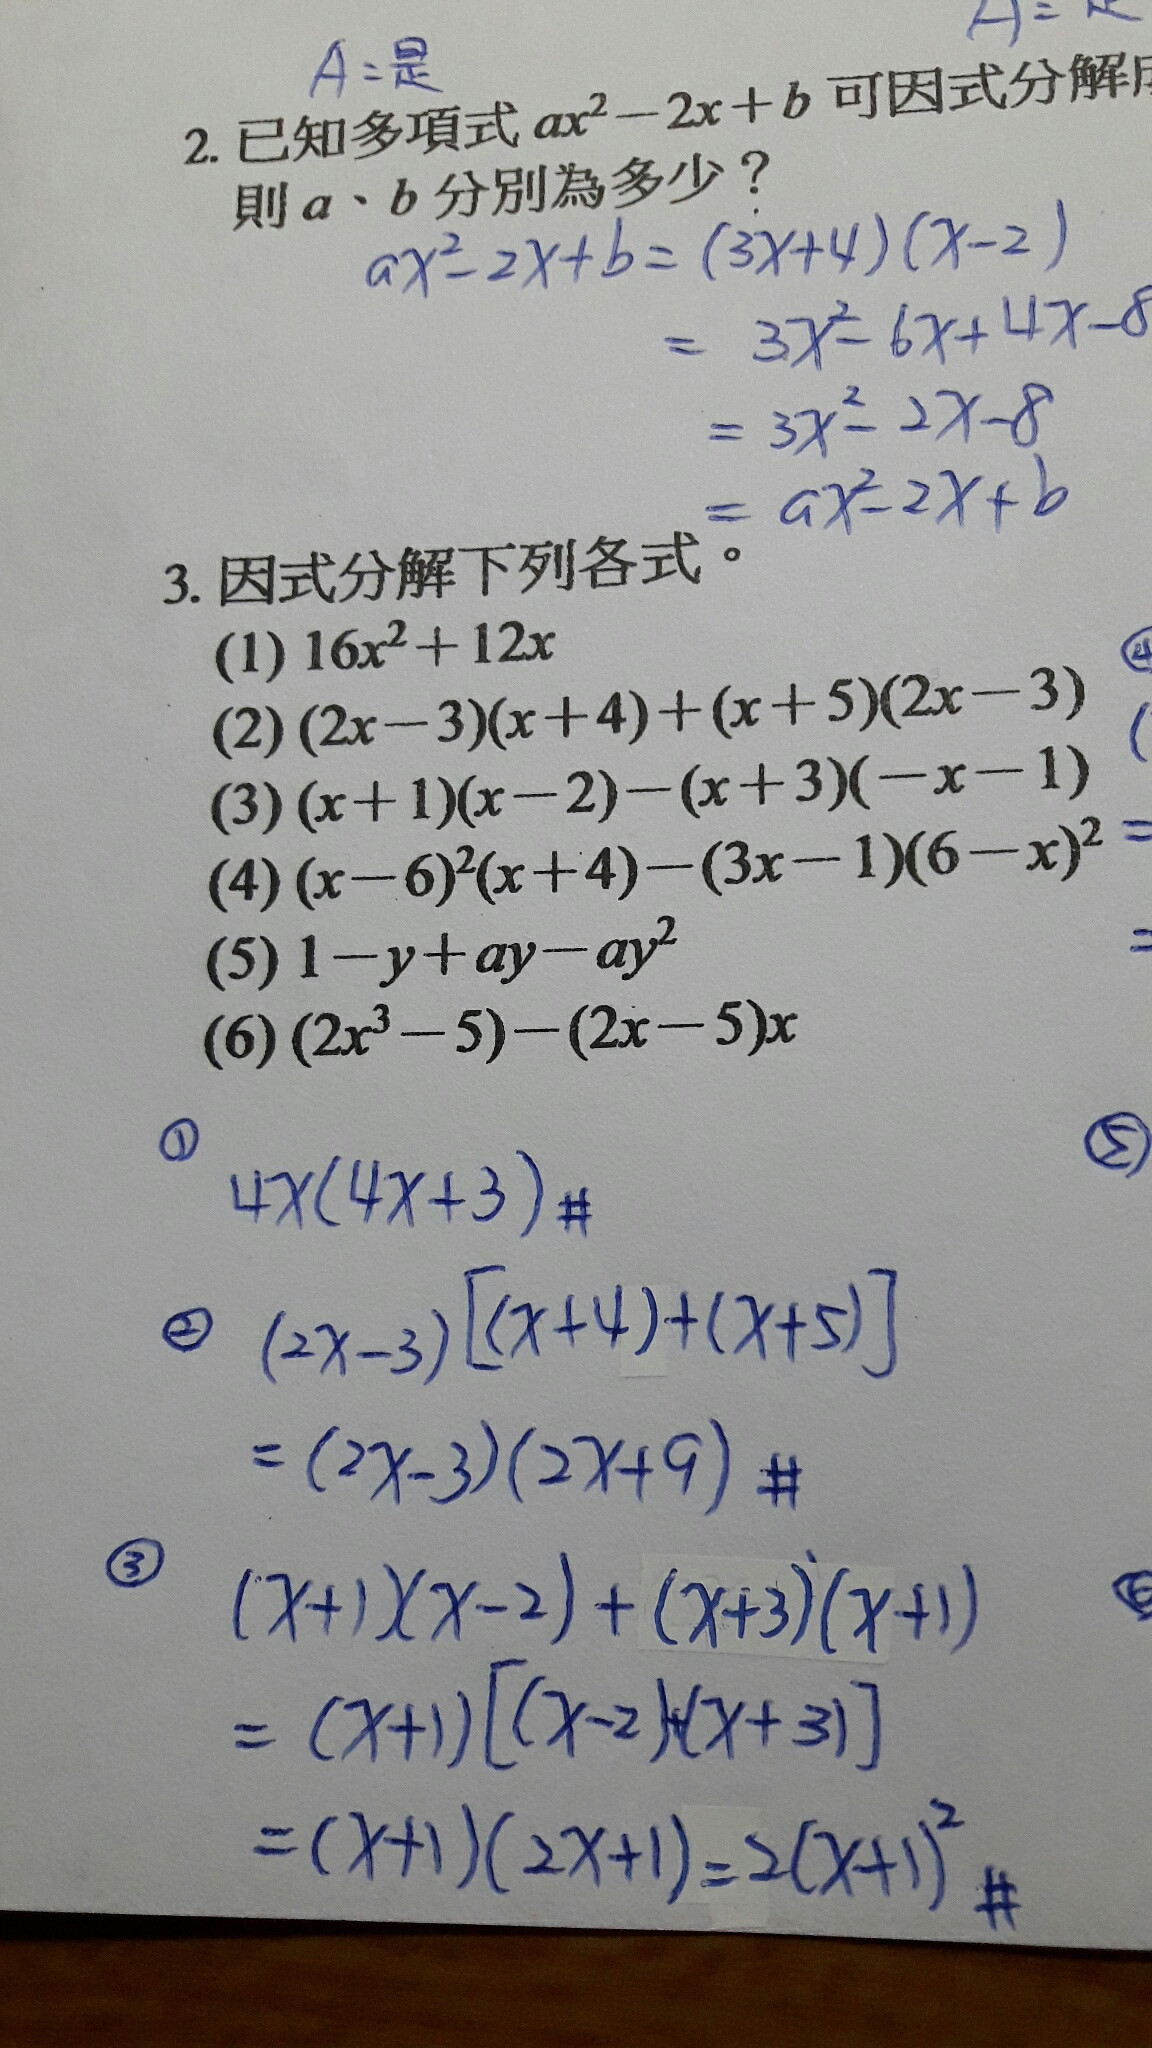 A=是
2. 已知多項式 ax²－2x＋b 可因式分解
則 a、b 分別為多少？
ax²-2x+b=(3x+4)(x-2)
= 3x²-6x+4x-8
= 3x²-2x-8
= ax²-2x+b
3. 因式分解下列各式。
(1) 16x²＋12x
(2) (2x－3)(x＋4)＋(x＋5)(2x－3)
(3) (x＋1)(x－2)－(x＋3)(－x－1)
(4) (x－6)²(x＋4)－(3x－1)(6－x)²
(5) 1－y＋ay－ay²
(6) (2x³－5)－(2x－5)x
④
(
=
=
①
4x(4x+3)#
⑤
② (2x-3)[(x+4)+(x+5)]
=(2x-3)(2x+9) #
③ (x+1)(x-2)+(x+3)(x+1)
⑥
= (x+1)[(x-2)+(x+3)]
=(x+1)(2x+1)=2(x+1)² #